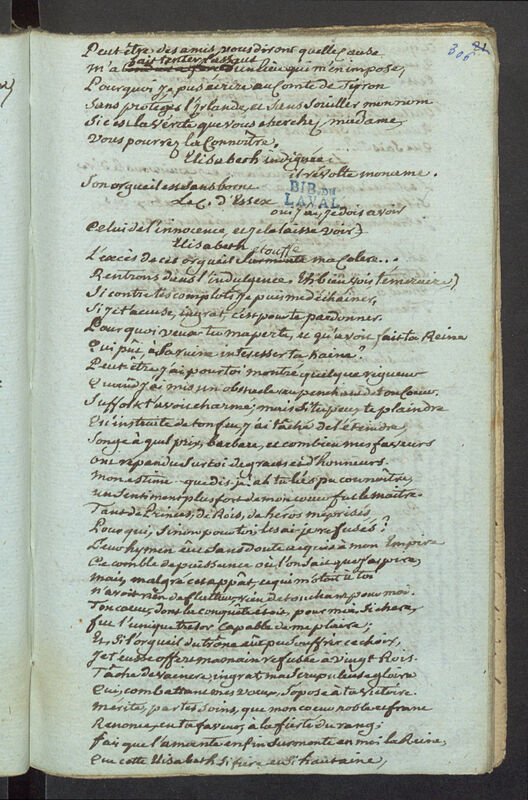 306 21
Peut être des amis vous diront quelle cause
fait tenter l'assaut
m'a en un lieu qui m'en impose,
Pourquoi j'ai pu écrire au Comte de Tiron
Sans proteger l'Irlande, et sans souiller mon nom
Si c'est la vérité que vous cherchez, madame,
Vous pourrez la connoître.
Elisabeth indignée
il révolte mon ame.
Son orgueil est sans borne
Le C. d'Essex
BIB. DU
LAVAL
oui j'ai, je dois avoir
Celui de l'innocence, et je le laisse voir
Elisabeth
étouffe
L'excès de cet orgueil surmonte ma colere...
Rentrons dans l'indulgence. Et bien sois témeraire,
Si contre tes complots je puis me déchaîner,
Si je t'accuse, ingrat, c'est pour te pardonner.
Pourquoi veux-tu ma perte, et qu'avoit fait ta Reine
Qui pût à sa ruine interesser ta haine?
Peut être j'ai pour toi montré quelque rigueur
Quand j'ai mis un obstacle au penchant de ton Coeur.
Suffolk t'avoit charmé; mais si tu peux te plaindre
Qu'instruite de ton feu, j'ai tâché de l'éteindre,
Songe à quel prix, barbare, et combien mes faveurs
ont répandu sur toi de graces et d'honneurs.
mon estime - que dis-je! ah tu l'as pu connoître,
un sentiment plus fort de mon coeur fut le maître.
Tant de Princes, de Rois, de héros méprisés
Pour qui, sinon pour toi, les ai-je refusés?
Leur hymen eut sans doute acquis à mon Empire
Ce comble de puissance où l'on sait que j'aspire,
mais, malgré cet appât, ce qui m'ôtoit à toi
n'avoit rien de flatteur, rien de touchant pour moi.
Ton coeur, dont la conquête étoit, pour moi, si chere,
fut l'unique tresor capable de me plaire;
Et si l'orgueil du trône eût pu souffrir ce choix,
Je t'eusse offert ma main refusée à vingt Rois.
Tâche de vaincre, ingrat, ma scrupuleuse gloire
Qui, combattant mes voeux, s'oppose à ta victoire.
mérite, par tes soins, que mon coeur noble et franc
Renonce, en ta faveur, à la fierté du rang;
fai que l'amante enfin surmonte en moi la Reine,
Que cette Elisabeth si fiere et si hautaine,